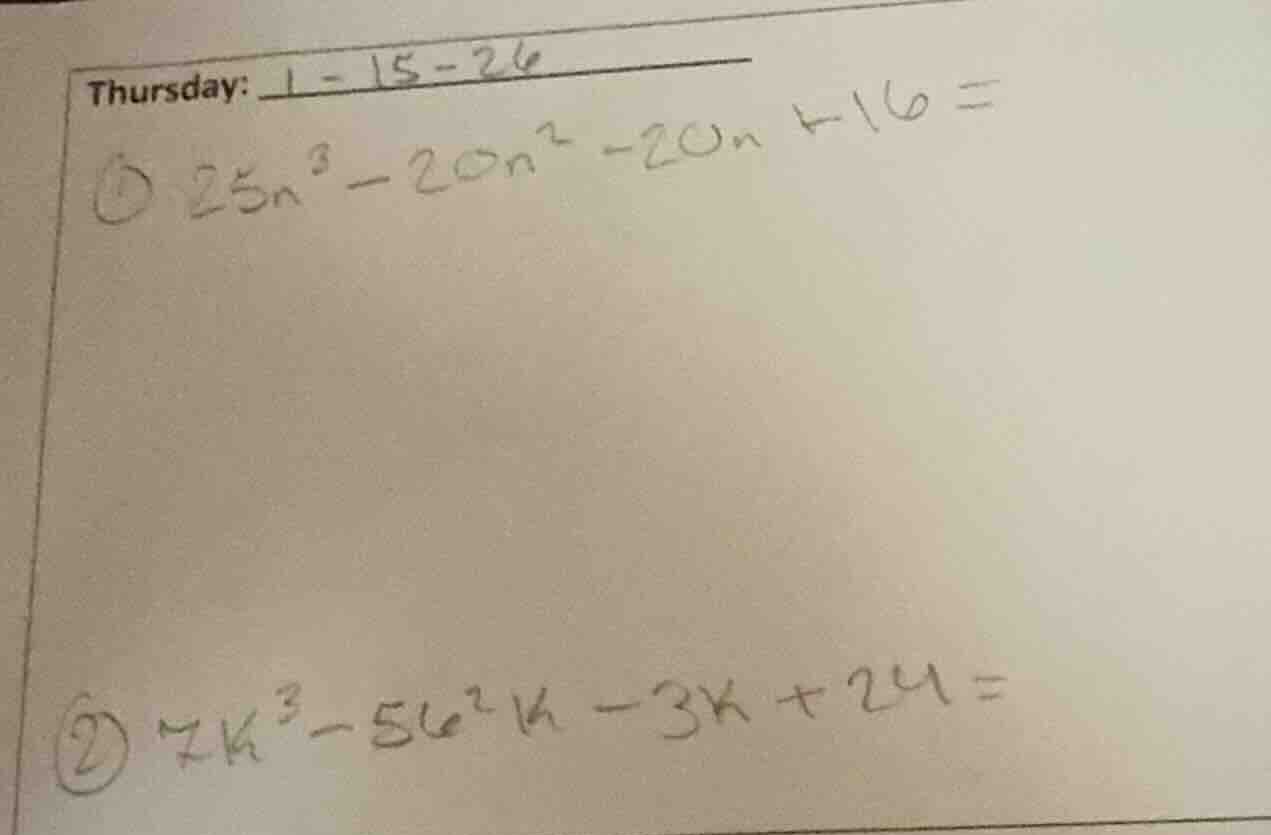 Thursday: 1-15-26
① 25n³ - 20n² - 20n + 16 =
② 7K³ - 56²K - 3K + 24 =